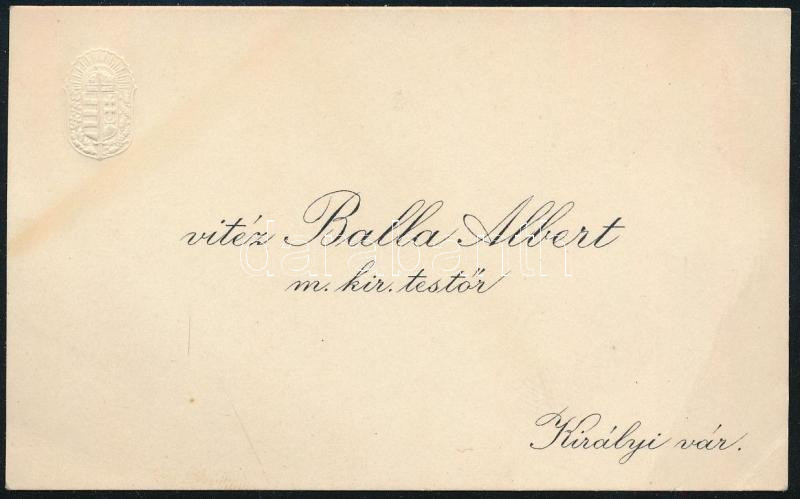 vitéz Balla Albert
darabanth
m. kir. testőr
Királyi vár.